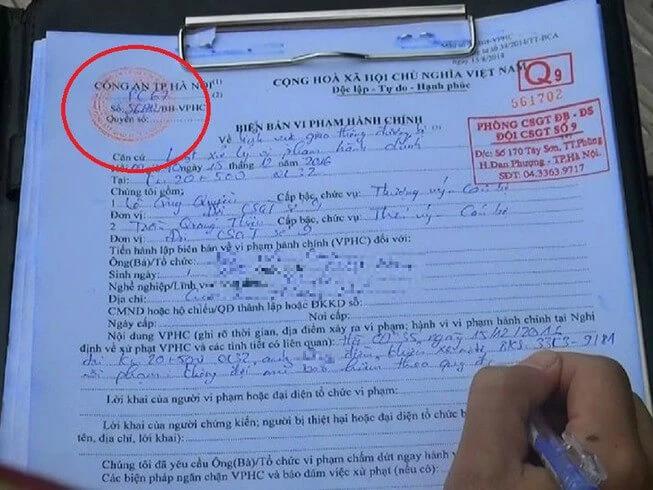 CÔNG AN TP HÀ NỘI (1)
PC67 (2)
Số: /BB-VPHC
Quyển số:
34/2014/TT-BCA
15/8/2014
CỘNG HOÀ XÃ HỘI CHỦ NGHĨA VIỆT NAM
Độc lập - Tự do - Hạnh phúc
Q9
561702
PHÒNG CSGT ĐB - ĐS
ĐỘI CSGT SỐ 9
Đ/c: Số 170 Tây Sơn, TT.Phùng
H.Đan Phượng - TP.Hà Nội.
SĐT: 04.3363.9717
BIÊN BẢN VI PHẠM HÀNH CHÍNH
Về lĩnh vực giao thông đường bộ
Căn cứ Luật xử lý vi phạm hành chính
ngày 15 tháng 12 năm 2016
Tại: Km 20+500 QL32
Chúng tôi gồm:
1. Lê Công Quyền Cấp bậc, chức vụ: Thượng úy - Cán bộ
Đơn vị: Đội CSGT số 9
2. Trần Quang Cấp bậc, chức vụ: Thiếu úy - Cán bộ
Đơn vị: Đội CSGT số 9
Tiến hành lập biên bản về vi phạm hành chính (VPHC) đối với:
Ông(Bà)/Tổ chức:
Sinh ngày:
Nghề nghiệp/Lĩnh
Địa chỉ:
CMND hoặc hộ chiếu/QĐ thành lập hoặc ĐKKD số:
Ngày cấp: Nơi cấp:
Nội dung VPHC (ghi rõ thời gian, địa điểm xảy ra vi phạm; hành vi vi phạm hành chính tại Nghị
định về xử phạt VPHC và các tình tiết có liên quan): Hồi ngày 15/12/2016
tại Km 20+500 QL32, anh điều khiển xe BKS: 33C3-9181
vi phạm: không đội mũ bảo hiểm theo quy
Lời khai của người vi phạm hoặc đại diện tổ chức vi phạm:
Lời khai của người chứng kiến; người bị thiệt hại hoặc đại diện tổ chức b
tên, địa chỉ, lời khai):
Chúng tôi đã yêu cầu Ông(Bà)/Tổ chức vi phạm chấm dứt ngay hành v
Các biện pháp ngăn chặn VPHC và bảo đảm việc xử phạt (nếu có):